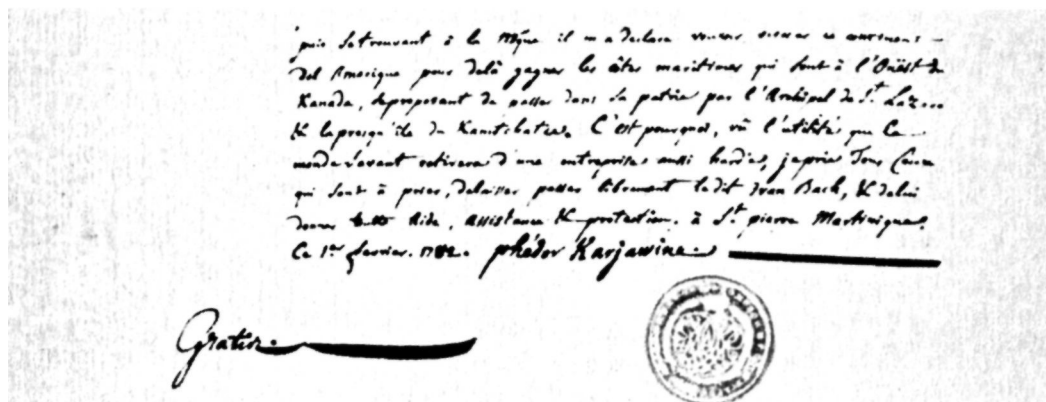 puis, se trouvant à la Mqúe il m'a déclaré vouloir
del'Amerique pour delà gagner les côtes maritimes qui sont à l'Oüést du
Kanada, se proposant de passer dans sa patrie par l'Archipel de St. Lazare
& la presqu'île du Kamtchatka. C'est pourquoi, vû l'utilité que le
monde savant retirera d'une entreprise aussi hardie, je prie Tous Ceux
qui sont à prier, de laisser passer librement ledit Ivan Bach, & de lui
donner toute Aide, Assistance & protection. à St. pierre Martinique.
Ce 1er. fevrier. 1782. phédor Karjawine
Gratis.